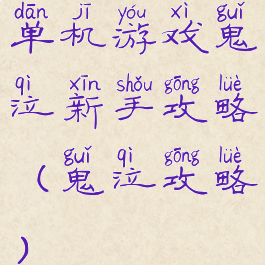 dān jī yóu xì guǐ
单机游戏鬼
qì xīn shǒu gōng lüè
泣新手攻略
guǐ qì gōng lüè
（鬼泣攻略
）